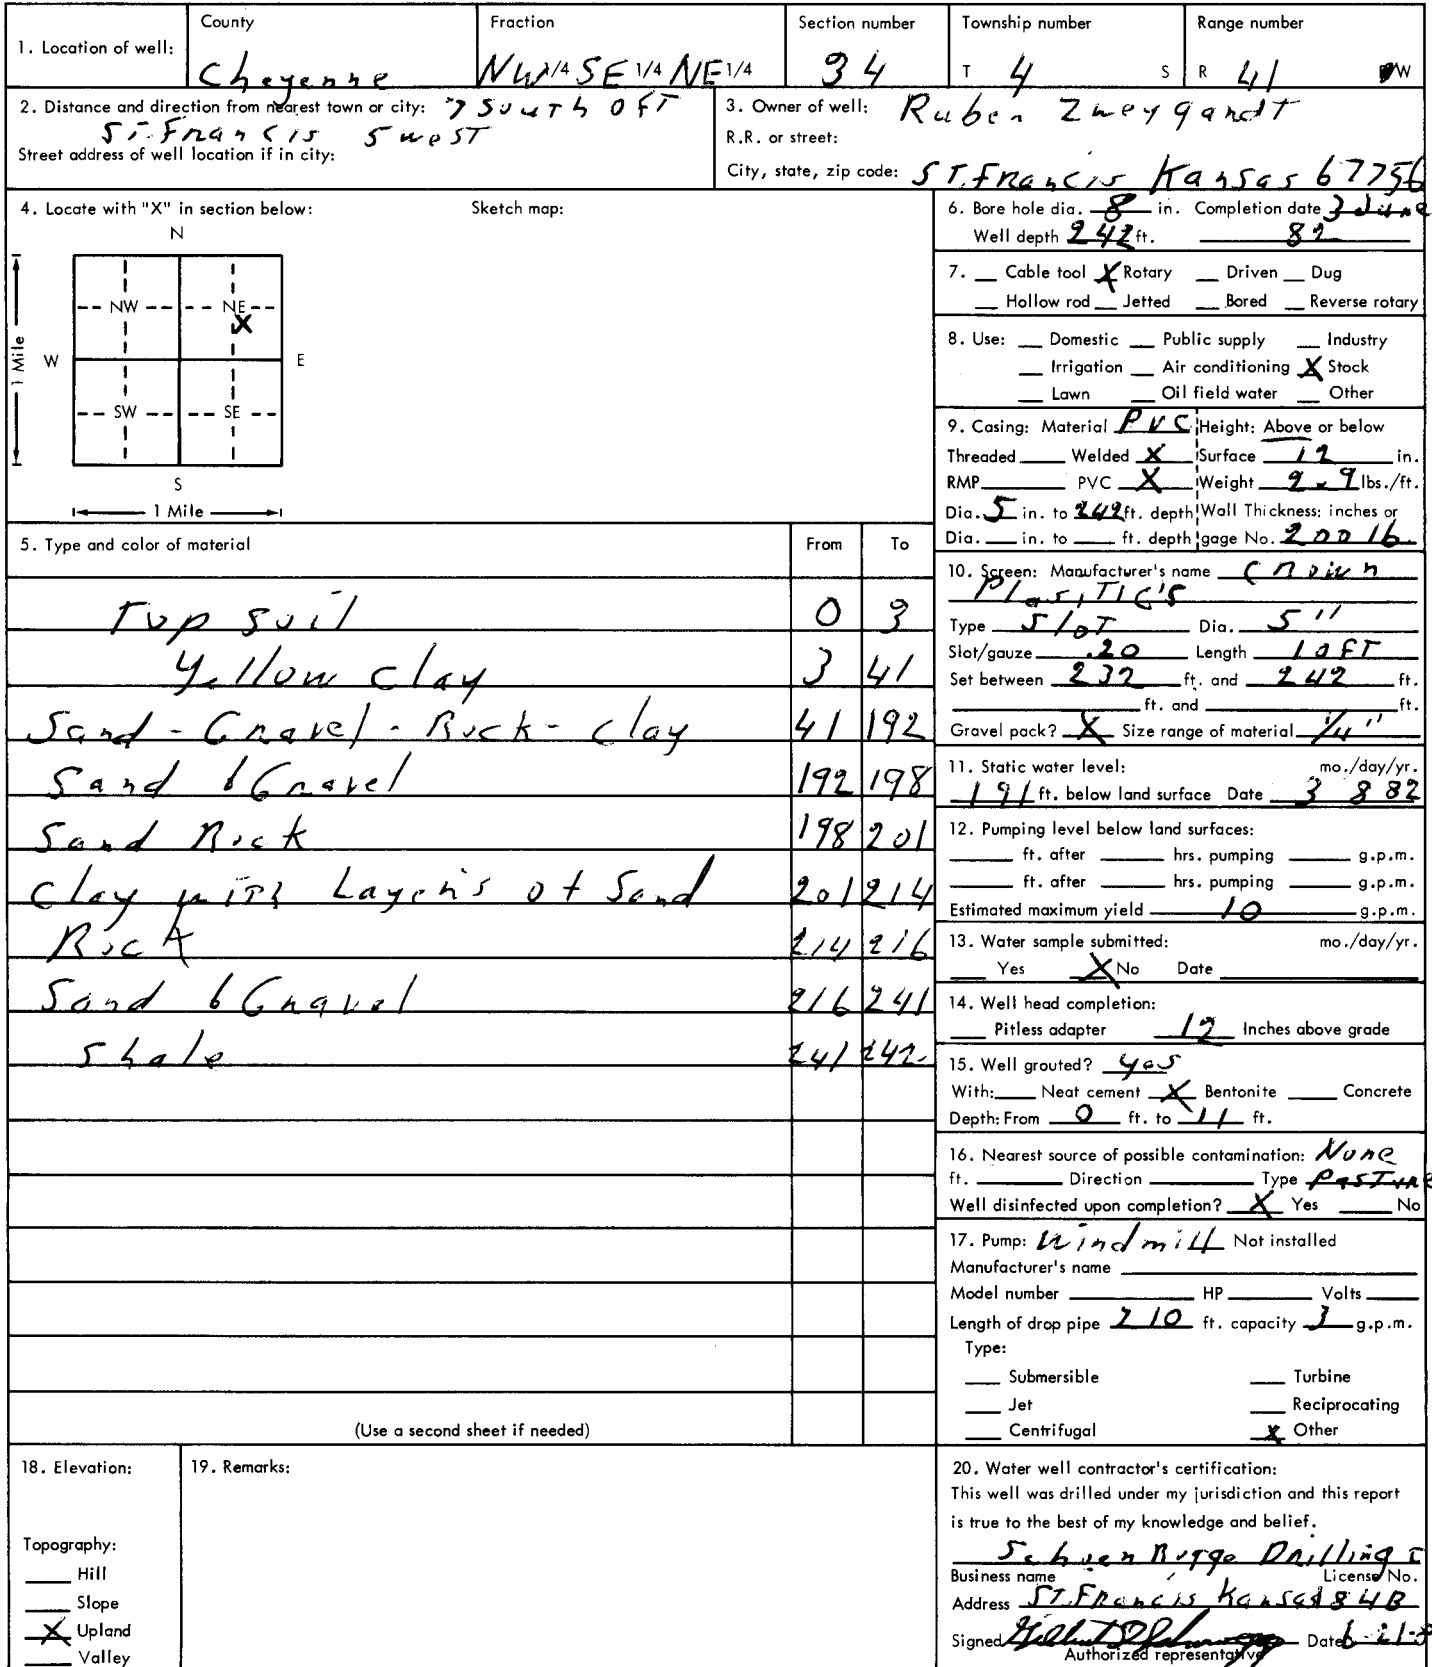 1. Location of well: County Cheyenne Fraction NW 1/4 SE 1/4 NE 1/4 Section number 34 Township number T 4 S Range number R 41 W
2. Distance and direction from nearest town or city: 7 South OFT
St. Francis 5 west
Street address of well location if in city:
3. Owner of well: Ruben Zweygardt
R.R. or street:
City, state, zip code: ST. Francis Kansas 67756
4. Locate with "X" in section below: Sketch map:
N
NW NE
X
W E
1 Mile
SW SE
S
1 Mile
5. Type and color of material From To
Top soil 0 3
Yellow clay 3 41
Sand - Gravel - Rock - clay 41 192
Sand & Gravel 192 198
Sand Rock 198 201
Clay with Layers of Sand 201 214
Rock 214 216
Sand & Gravel 216 241
Shale 241 242
(Use a second sheet if needed)
6. Bore hole dia. 8 in. Completion date 3 June
Well depth 242 ft. 82
7. Cable tool X Rotary Driven Dug
Hollow rod Jetted Bored Reverse rotary
8. Use: Domestic Public supply Industry
Irrigation Air conditioning X Stock
Lawn Oil field water Other
9. Casing: Material PVC Height: Above or below
Threaded Welded X Surface 12 in.
RMP PVC X Weight 2.9 lbs./ft.
Dia. 5 in. to 242 ft. depth Wall Thickness: inches or
Dia. in. to ft. depth gage No. 200 lb.
10. Screen: Manufacturer's name Crown
Plastic's
Type Slot Dia. 5"
Slot/gauze .20 Length 10 FT
Set between 232 ft. and 242 ft.
ft. and ft.
Gravel pack? X Size range of material 1/4"
11. Static water level: mo./day/yr.
191 ft. below land surface Date 3 8 82
12. Pumping level below land surfaces:
ft. after hrs. pumping g.p.m.
ft. after hrs. pumping g.p.m.
Estimated maximum yield 10 g.p.m.
13. Water sample submitted: mo./day/yr.
Yes X No Date
14. Well head completion:
Pitless adapter 12 Inches above grade
15. Well grouted? yes
With: Neat cement X Bentonite Concrete
Depth: From 0 ft. to 11 ft.
16. Nearest source of possible contamination: None
ft. Direction Type Pasture
Well disinfected upon completion? X Yes No
17. Pump: Windmill Not installed
Manufacturer's name
Model number HP Volts
Length of drop pipe 210 ft. capacity 3 g.p.m.
Type:
Submersible Turbine
Jet Reciprocating
Centrifugal X Other
18. Elevation:
Topography:
Hill
Slope
X Upland
Valley
19. Remarks:
20. Water well contractor's certification:
This well was drilled under my jurisdiction and this report
is true to the best of my knowledge and belief.
Drilling
Business name License No.
Address ST. Francis Kansas 84B
Signed Date 6-21-8
Authorized representative